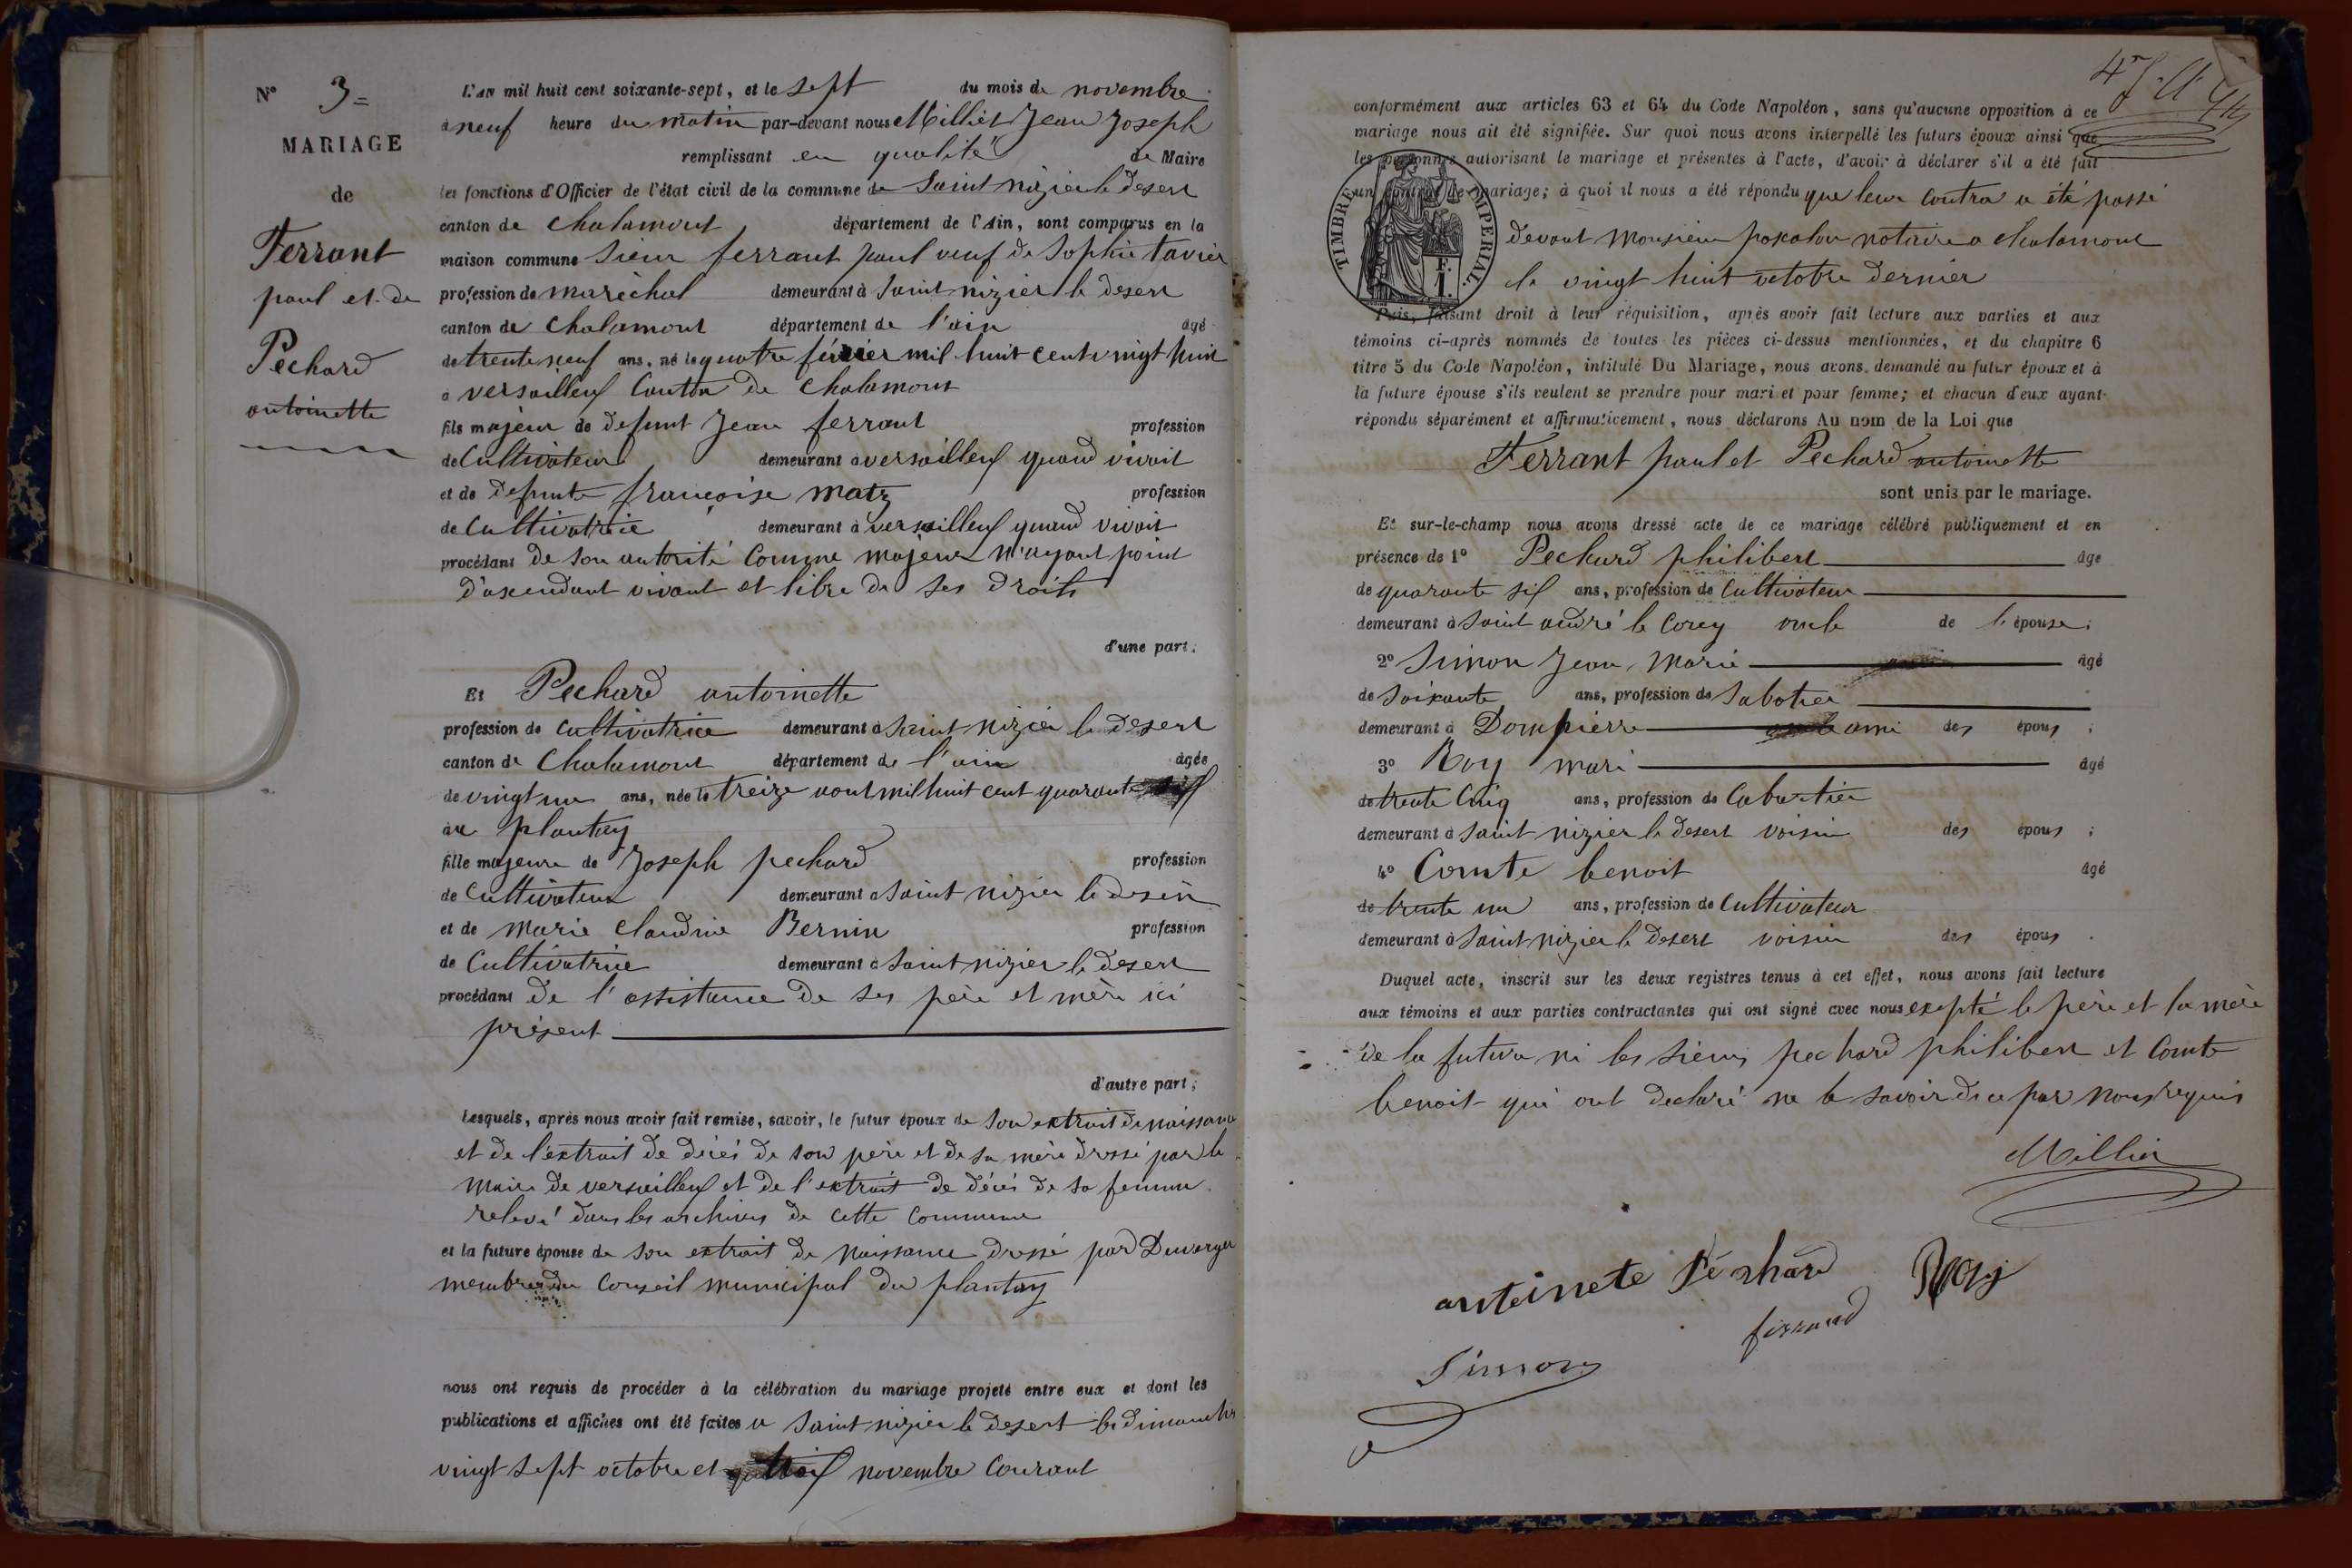 N° 3=
MARIAGE
de
Ferrant
paul et de
Pechard
antoinette
L'an mil huit cent soixante-sept, et le sept du mois de novembre
à neuf heure du matin par-devant nous Milliet Jean Joseph
remplissant en qualité de Maire
les fonctions d'Officier de l'état civil de la commune de Saint nizier le desert
canton de Chalamont département de l'Ain, sont comparus en la
maison commune Sieur ferrant paul veuf de Sophie tavier
profession de maréchal demeurant à Saint nizier le desert
canton de Chalamont département de l'ain âgé
de trente neuf ans, né le quatre février mil huit cent vingt huit
a versailleux Canton de Chalamont
fils majeur de defunt Jean ferrant profession
de Cultivateur demeurant a versailleux quand vivait
et de defunte françoise matz profession
de Cultivatrice demeurant à versailleux quand vivait
procédant de son autorité Comme majeur n'ayant point
d'ascendant vivant et libre de ses droits
d'une part;
Et Pechard antoinette
profession de Cultivatrice demeurant à Saint nizier le desert
canton de Chalamont département de l'ain âgée
de vingt un ans, née le treize aout mil huit cent quarante six
au plantay
fille majeure de Joseph pechard profession
de Cultivateur demeurant a Saint nizier le desert
et de marie Claudine Bernin profession
de Cultivatrice demeurant à Saint nizier le desert
procédant de l'assistance de ses père et mère ici
présent
d'autre part;
Lesquels, après nous avoir fait remise, savoir, le futur époux de son extrait de naissance
et de l'extrait de décés de son père et de sa mère dressé par le
maire de versailleux et de l'extrait de décés de sa femme
relevé dans les archives de cette Commune
et la future épouse de son extrait de naissance dressé par Duverger
membre du Conseil municipal du plantay
nous ont requis de procéder à la célébration du mariage projeté entre eux et dont les
publications et affiches ont été faites a Saint nizier le desert les dimanches
vingt sept octobre et trois novembre Courant
conformément aux articles 63 et 64 du Code Napoléon, sans qu'aucune opposition à ce
mariage nous ait été signifiée. Sur quoi nous avons interpellé les futurs époux ainsi que
les personnes autorisant le mariage et présentes à l'acte, d'avoir à déclarer s'il a été fait
un contrat de mariage; à quoi il nous a été répondu que leur Contra a été passé
TIMBRE IMPERIAL.
F.
1.
devant monsieur notaire a Chalamont
le vingt huit octobre dernier
Puis, faisant droit à leur réquisition, après avoir fait lecture aux parties et aux
témoins ci-après nommés de toutes les pièces ci-dessus mentionnées, et du chapitre 6
titre 5 du Code Napoléon, intitulé Du Mariage, nous avons demandé au futur époux et à
la future épouse s'ils veulent se prendre pour mari et pour femme; et chacun d'eux ayant
répondu séparément et affirmativement, nous déclarons Au nom de la Loi que
Ferrant paul et Pechard antoinette
sont unis par le mariage.
Et sur-le-champ nous avons dressé acte de ce mariage célébré publiquement et en
présence de 1° Pechard philibert âgé
de quarante six ans, profession de Cultivateur
demeurant à Saint andré le Corcy oncle de l'épouse;
2° Simon Jean Marie âgé
de Soixante ans, profession de Sabotier
demeurant à Dompierre ami des épous;
3° Roy mari âgé
de trente Cinq ans, profession de Cabartier
demeurant à Saint nizier le desert voisin des épous;
4° Comte benoit âgé
de trente un ans, profession de Cultivateur
demeurant à Saint nizier le desert voisin des épous.
Duquel acte, inscrit sur les deux registres tenus à cet effet, nous avons fait lecture
aux témoins et aux parties contractantes qui ont signé avec nous exepté le père et la mère
de la future ni les Sieurs pechard philibert et Comte
benoit qui ont declaré ne le savoir de ce par nous requis
Milliet
antoinete Péchard Roy
ferrand
Simon